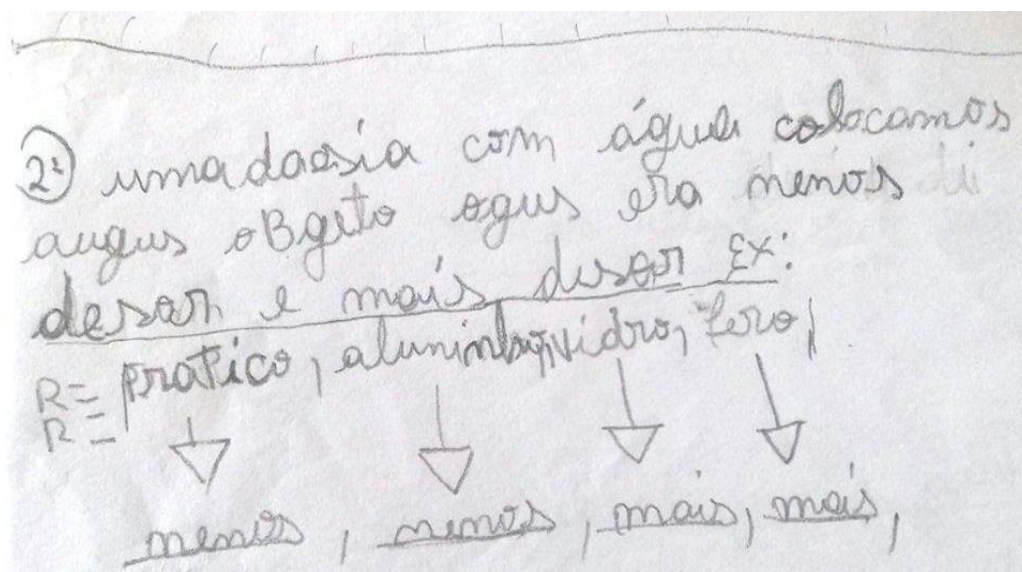 2º umadaosia com água colocamos
augus oBgeto ogus era menos di
desan e mais desan EX:
R= pratico, aluminho, vidro, fero,
R=
menos, menos, mais, mais,